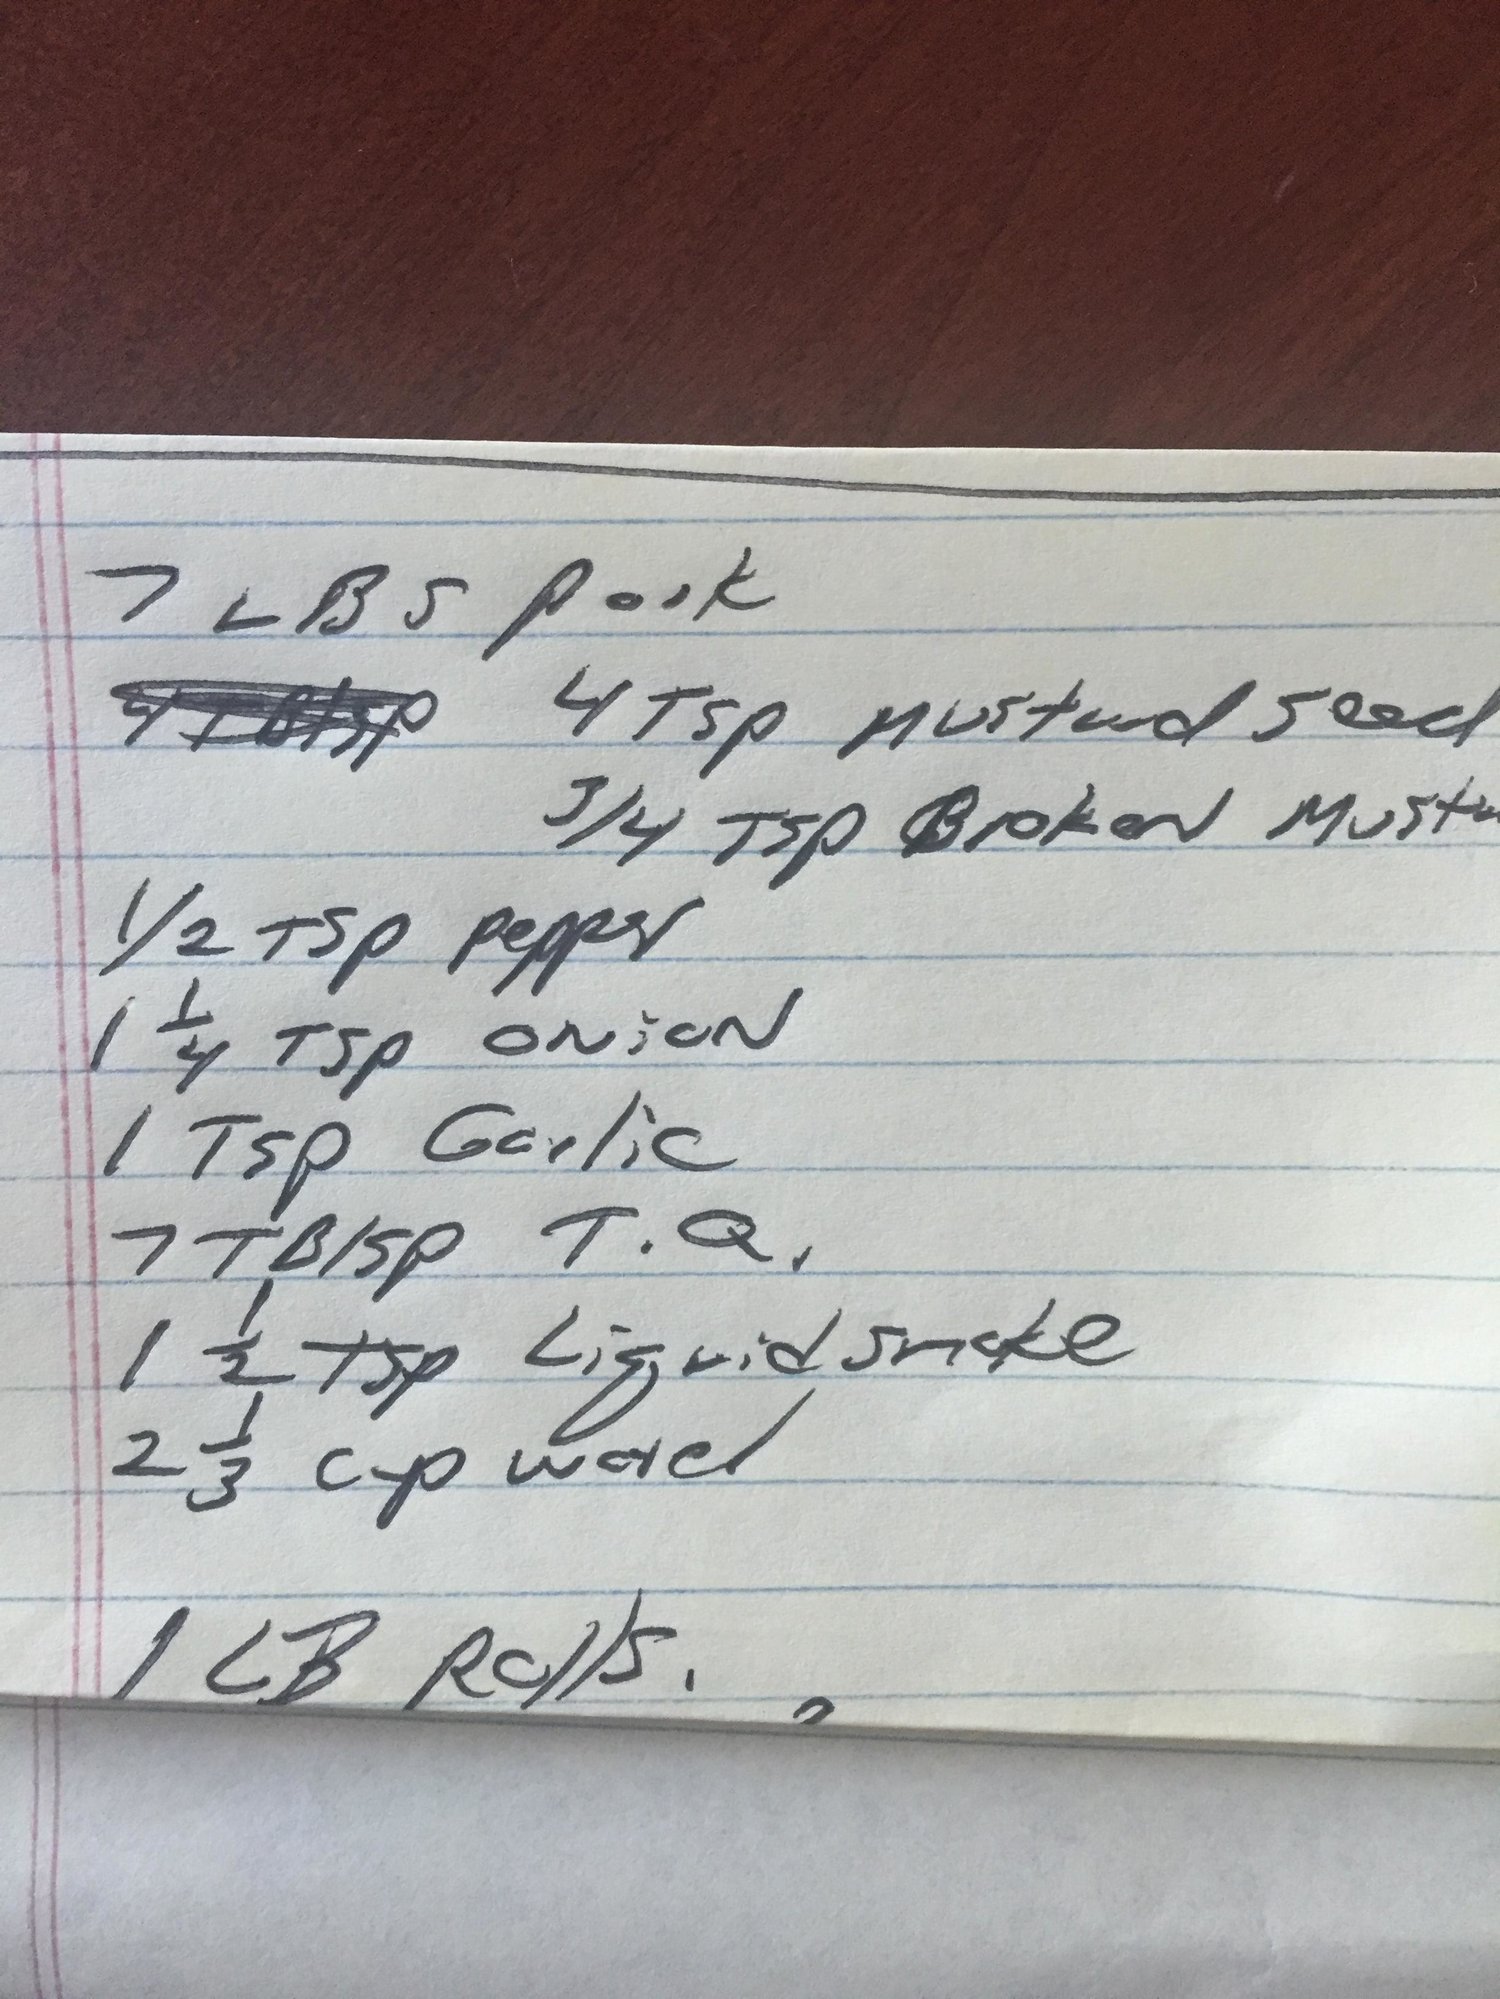 7 LBS Pork
4 Tsp Mustard Seed
3/4 Tsp Broken
1/2 Tsp pepper
1 1/4 Tsp onion
1 Tsp Garlic
7 TBlsp T.Q.
1 1/2 Tsp Liquid smoke
2 1/3 cup
1 LB Rolls.